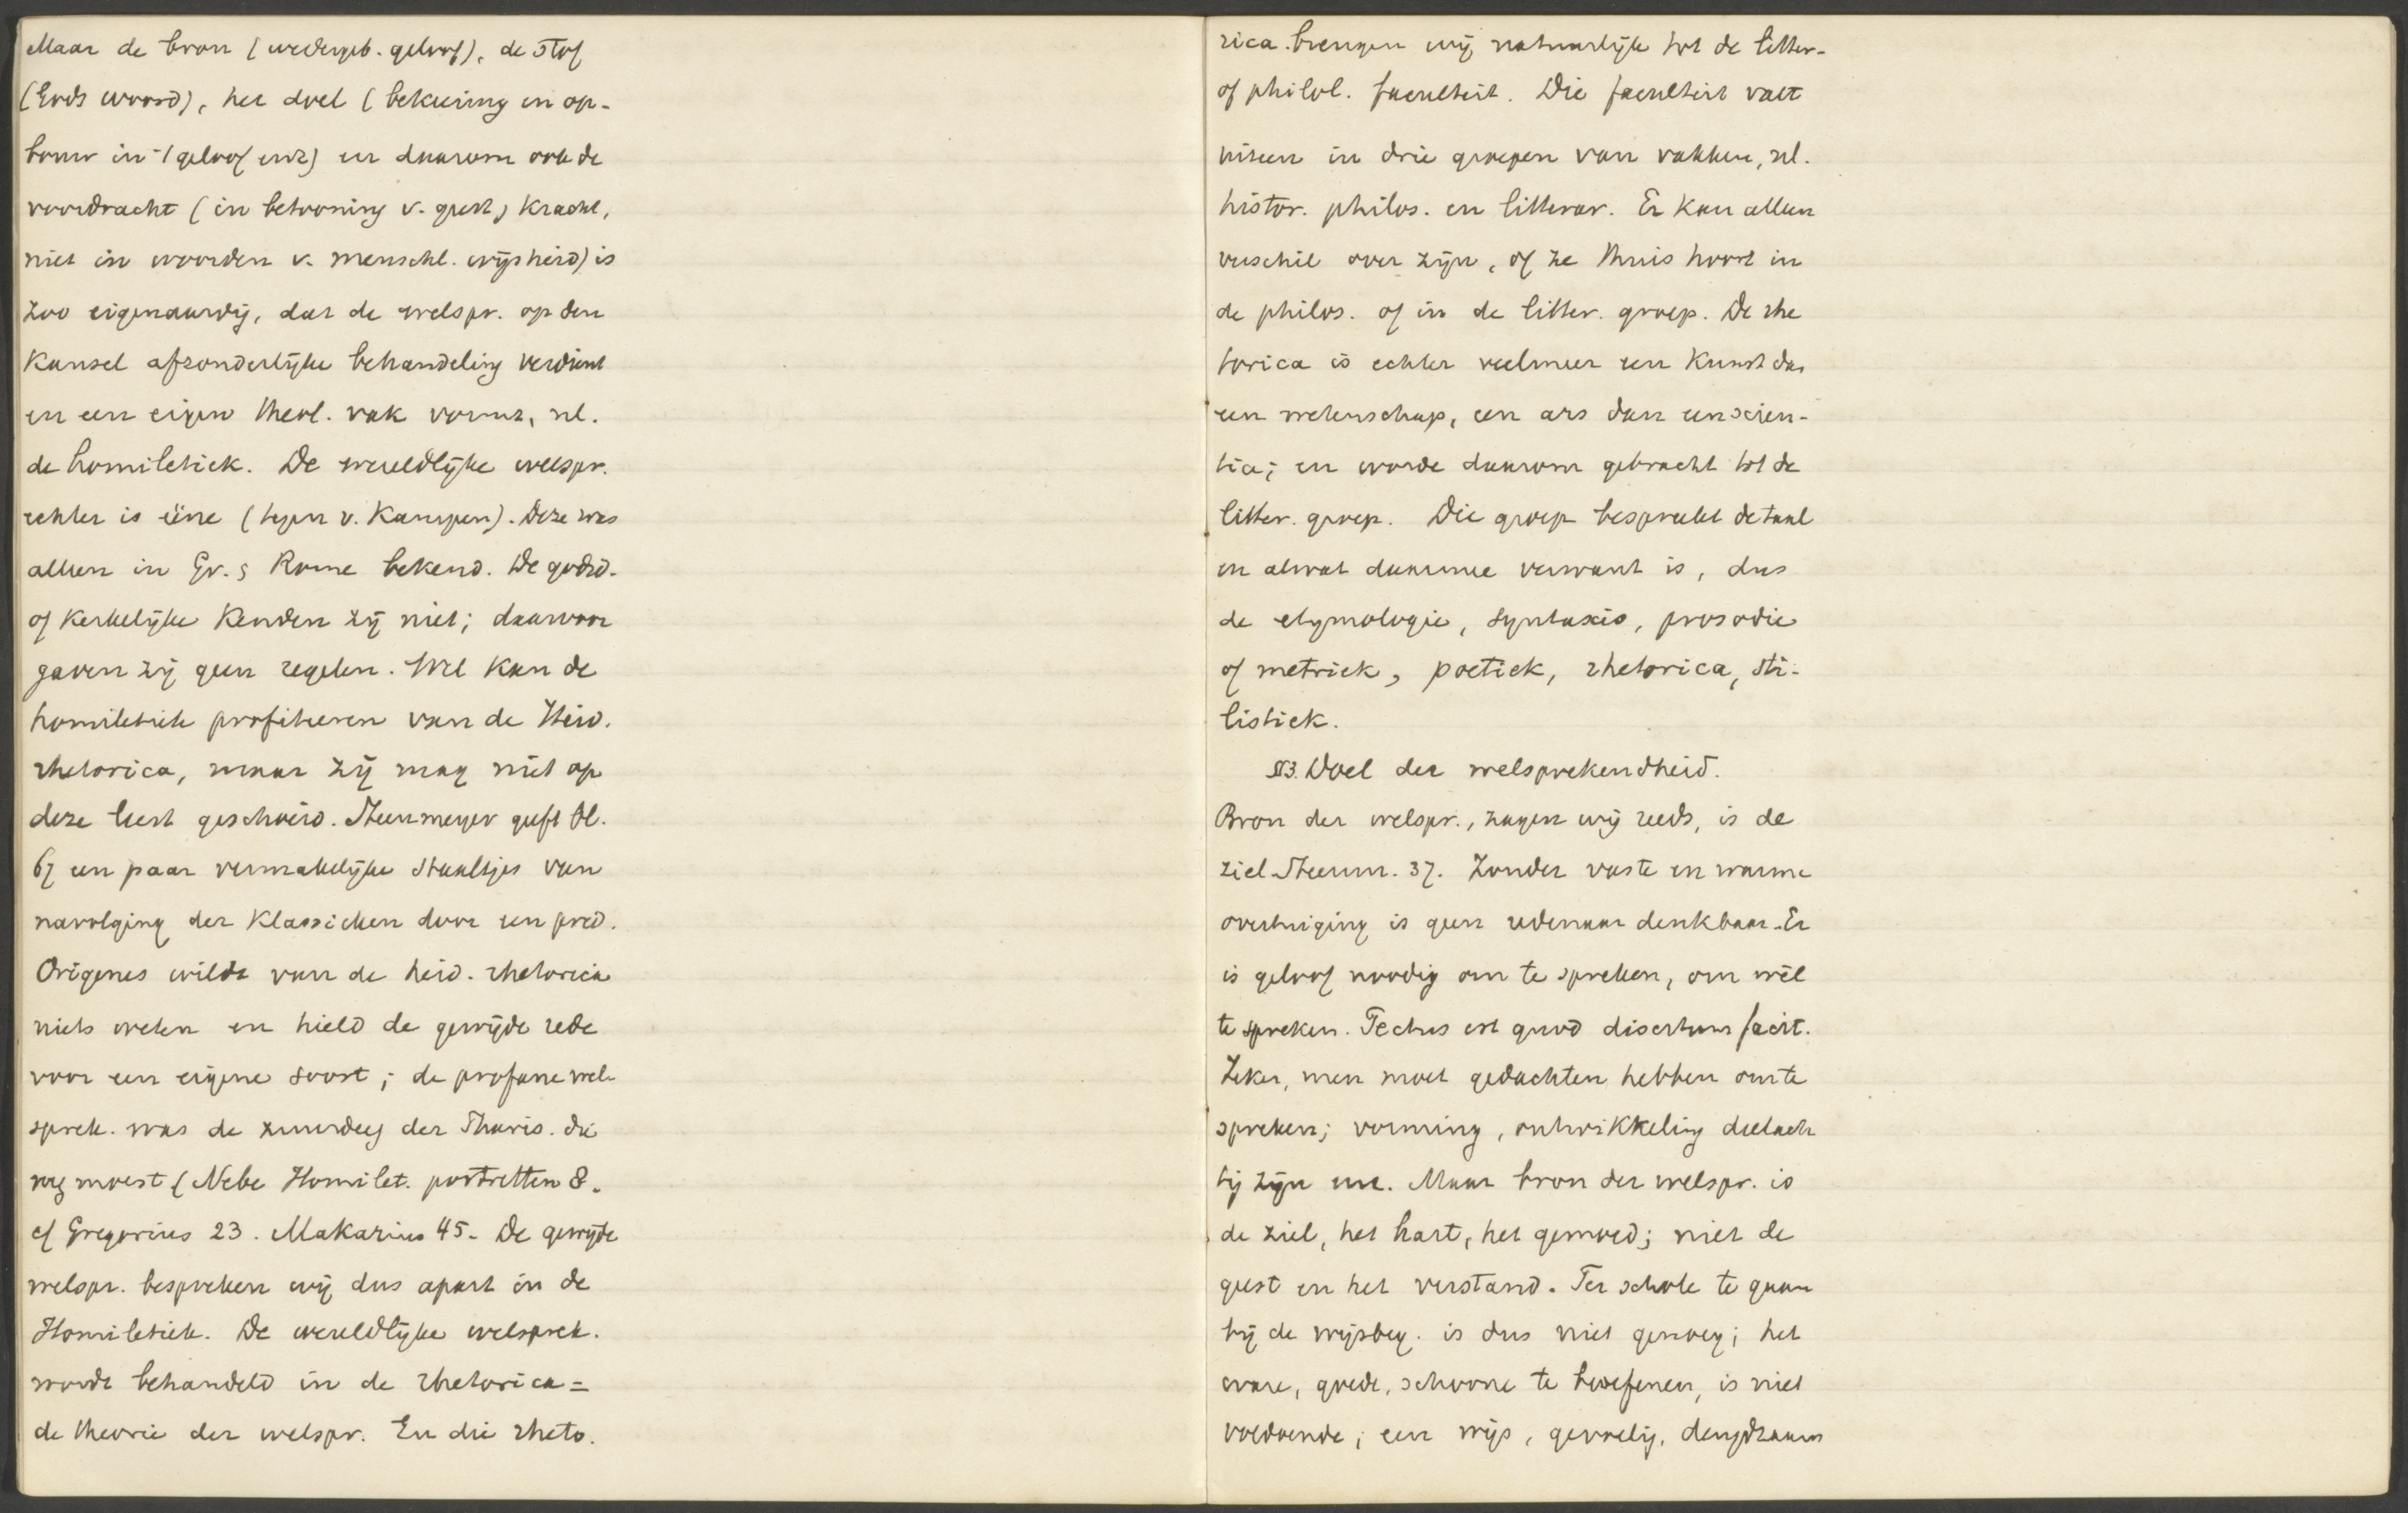 Maar de bron (wedergeb. geloof), de stof
(Gods woord), het doel (bekeering en op-
bouw in 't geloof enz) en daarom ook de
voordracht (in betooning v. geest & kracht,
niet in woorden v. menschl. wijsheid) is
zoo eigenaardig, dat de welspr. op den
kansel afzonderlijke behandeling verdient
en een eigen theol. vak vormt, nl.
de homiletiek. De wereldlijke welspr.
echter is ééne (tegen v. Kampen). Deze was
alleen in Gr. & Rome bekend. De godsd.
of kerkelijke kenden zij niet; daarvoor
gaven zij geen regelen. Wel kan de
homiletiek profiteeren van de Heid.
rhetorica, maar zij mag niet op
deze leest geschoeid. Steenmeyer geeft bl.
67 een paar vermakelijke staaltjes van
navolging der klassieken door een pred.
Origenes wilde van de heid. rhetorica
niets weten en hield de gewijde rede
voor een eigene soort; de profane wel-
sprek. was de zuurdeeg der Phariz. die
weg moest (Nebe Homilet. portretten 8.
cf Gregorius 23. Makarius 45. De gewijde
welspr. bespreken wij dus apart in de
Homiletiek. De wereldlijke welsprek.
wordt behandeld in de rhetorica =
de theorie der welspr. En die rheto-
rica brengen wij natuurlijk tot de litter-
of philol. faculteit. Die faculteit valt
uiteen in drie groepen van vakken, nl.
histor. philos. en litterar. Er kan alleen
verschil over zijn, of ze thuis hoort in
de philos. of in de litter. groep. De rhe
torica is echter veelmeer een kunst dan
een wetenschap, een ars dan een scien-
tia; en worde daarom gebracht tot de
litter. groep. Die groep bespreekt de taal
en alwat daarmee verwant is, dus
de etymologie, syntaxis, prosodie
of metriek, poetiek, rhetorica, sti-
listiek.
§3. Doel der welsprekendheid.
Bron der welspr., zagen wij reeds, is de
ziel. Steenm. 37. Zonder vaste en warme
overtuiging is geen redenaar denkbaar. Er
is geloof noodig om te spreken, om wèl
te spreken. Pectus est quod disertum facit.
Zeker, men moet gedachten hebben om te
spreken; vorming, ontwikkeling deelach
tig zijn enz. Maar bron der welspr. is
de ziel, het hart, het gemoed; niet de
geest en het verstand. Ter schole te gaan
bij de wijsbeg. is dus niet genoeg; het
ware, goede, schoone te beoefenen, is niet
voldoende; een wijs, gevoelig, deugdzaam